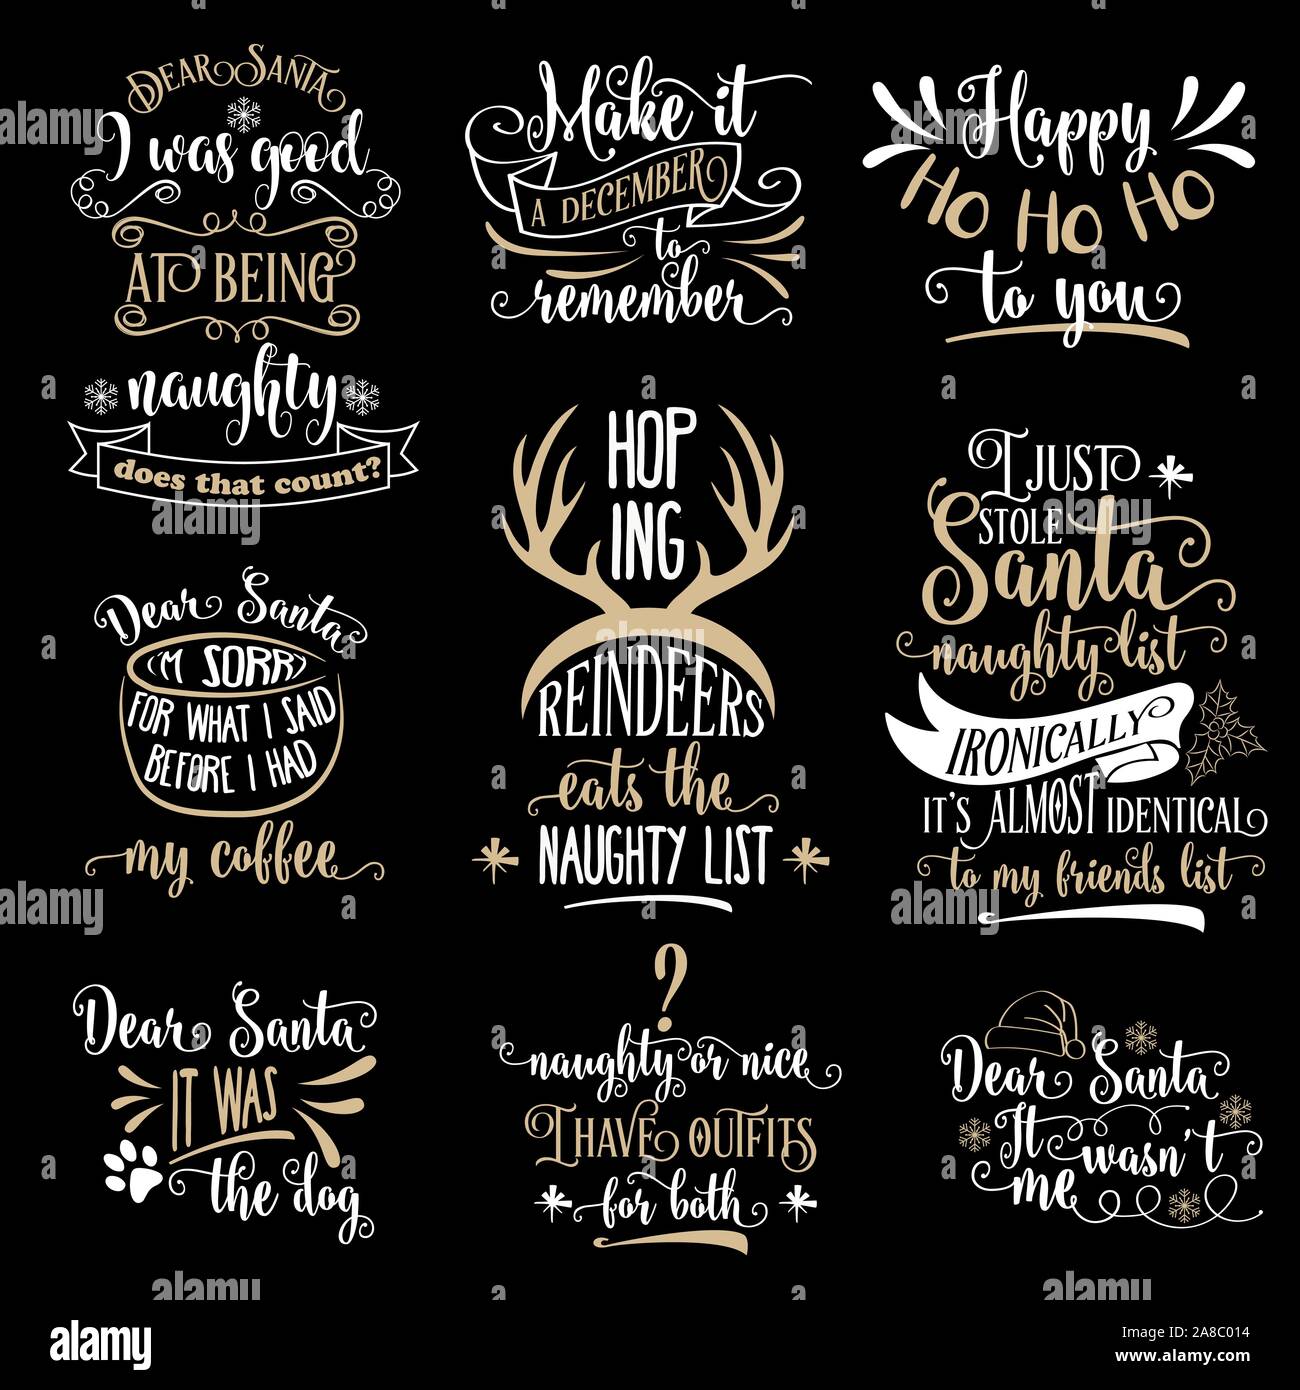 DEAR SANTA
I was good
AT BEING
naughty
does that count?
Make it
A DECEMBER
to
remember
Happy
HO HO HO
to you
HOP
ING
REINDEERS
eats the
NAUGHTY LIST
I JUST
STOLE
Santa
naughty list
IRONICALLY
IT'S ALMOST IDENTICAL
to my friends list
Dear Santa
I'M SORRY
FOR WHAT I SAID
BEFORE I HAD
my coffee
Dear Santa
IT WAS
the dog
?
naughty or nice
I HAVE OUTFITS
for both
Dear Santa
It wasn't
me
alamy
Image ID: 2A8C014
www.alamy.com